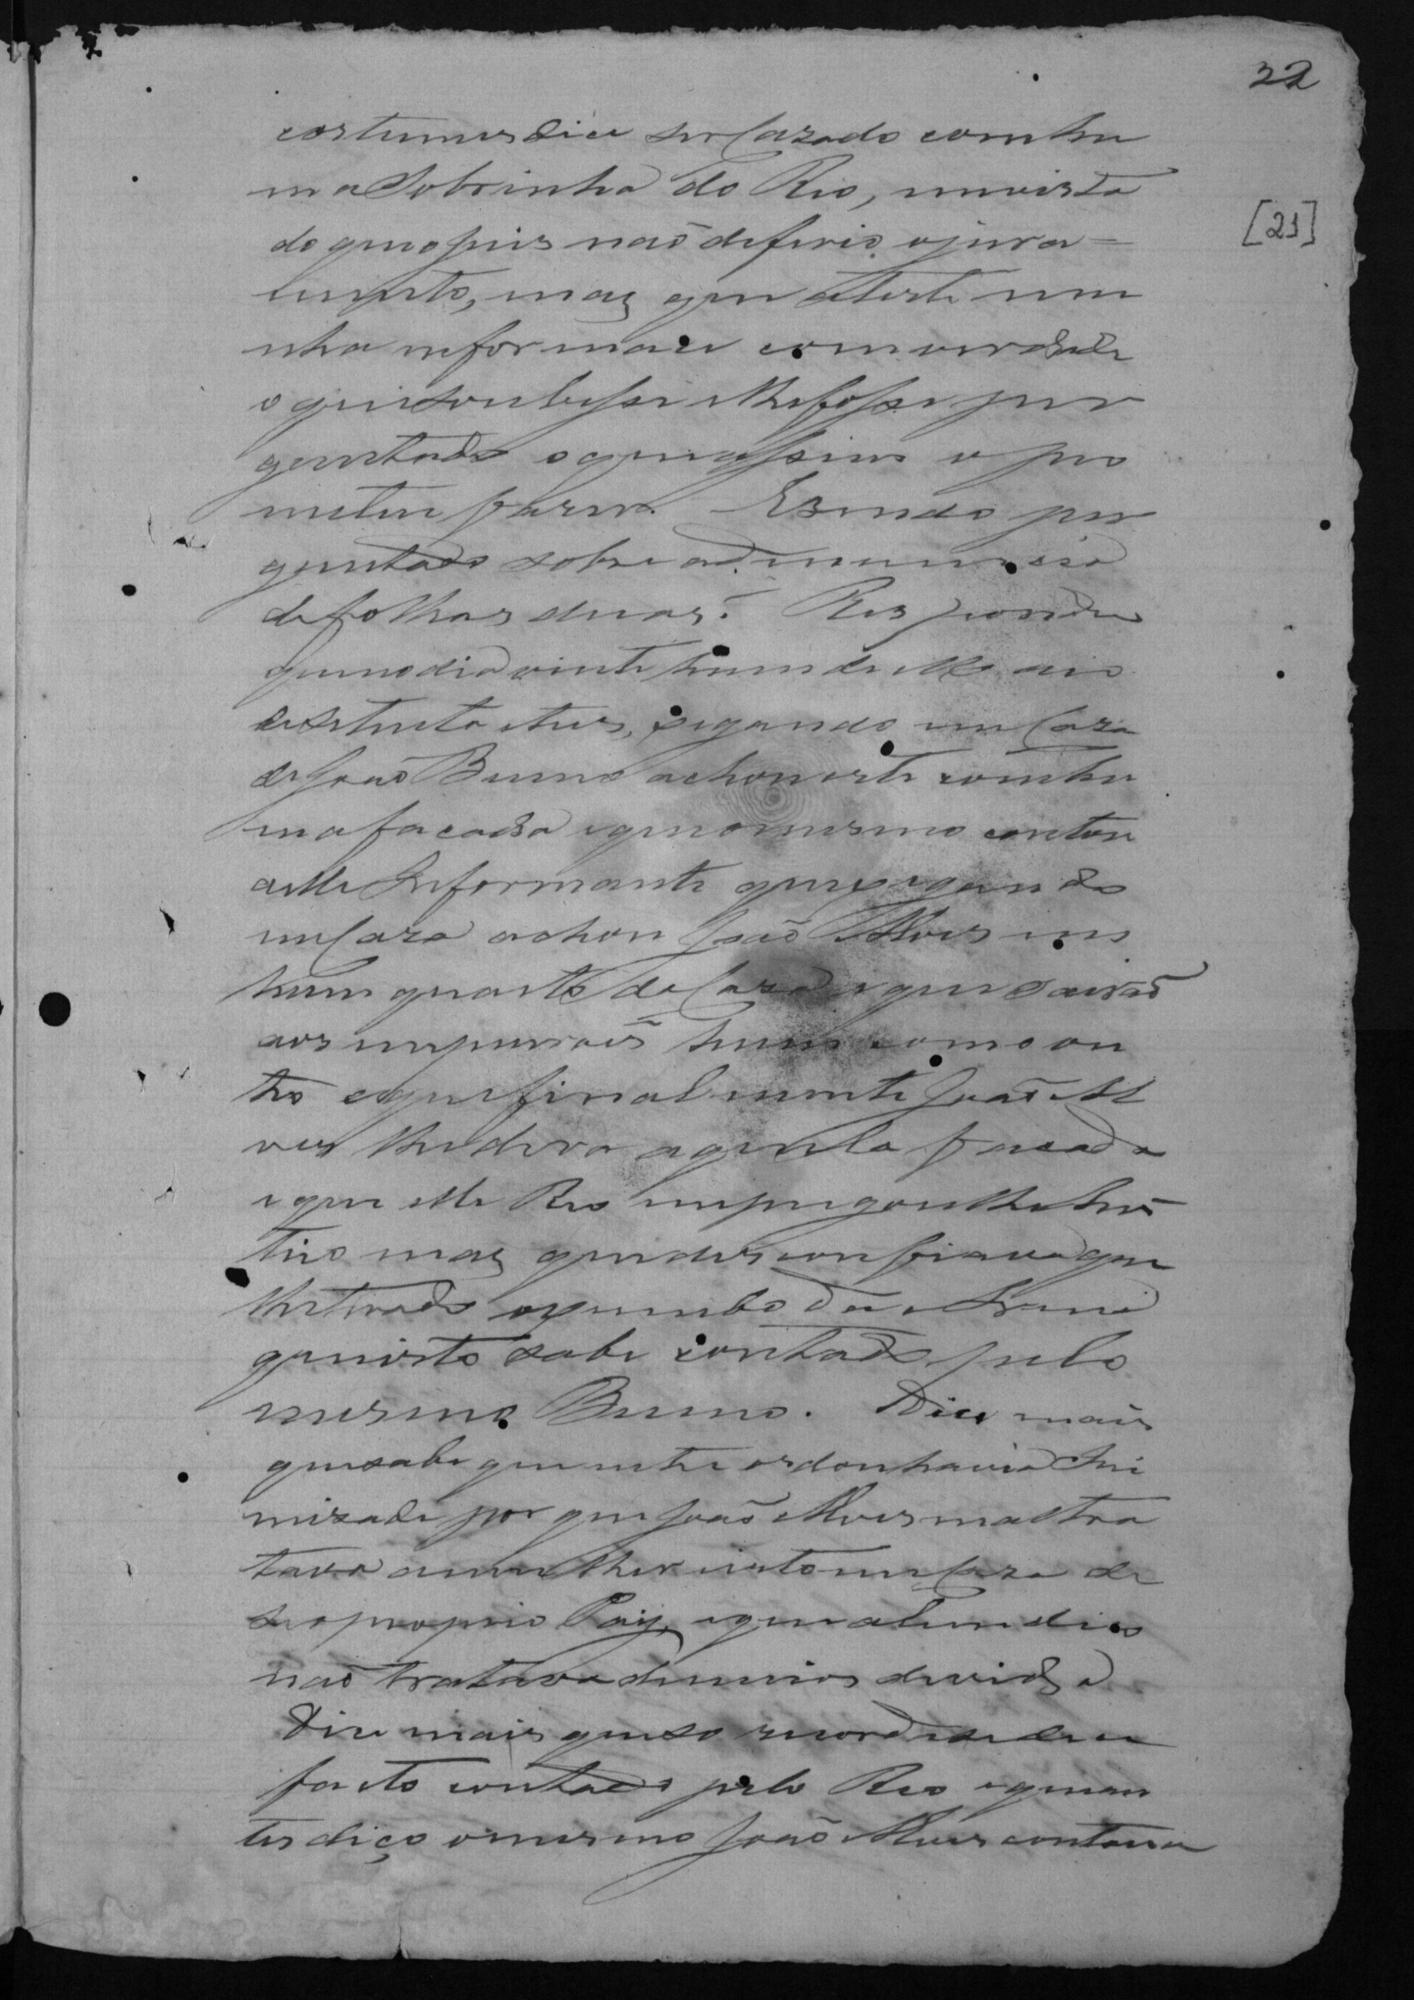 22
[21]
costumes dice ser Cazado com hu
ma Sobrinha do Reo, em vista
do que o juis não deferio o jura=
mento, mas que a este em
nha informace com verdade
o que soubesse e lhe fosse per
guntado o que assim o pro
meteu fazer. E sendo per
guntado sobre a denuncia
de folhas duas? Respondeu
que no dia vinte hum de Maio
de setenta e tres, xegando em Caza
de João Bueno achou este com hu
ma facada e que o mesmo contou
a elle Informante que xegando
em Caza achou João Alves em
hum quarto de Caza e que sairão
aos impurrões hum com o ou
tro e que finalmente João Al
ves lhe dera aquela facada
e que elle Reo impregou lhe hũ
tiro mas que desconfiava que
lhe tirado o xumbo da Arma
que isto sabe contado pelo
mesmo Bueno. Dice mais
que sabe que entre os dou havia Ini
mizade por que João Alves maltra
tava a mulher isto em Caza de
seo proprio Pay, e que alem diço
não tratava de meios de vida
Dice mais que so recorda-se dece
facto contado pelo Reo e que an
tes diço o mesmo João Alves contava